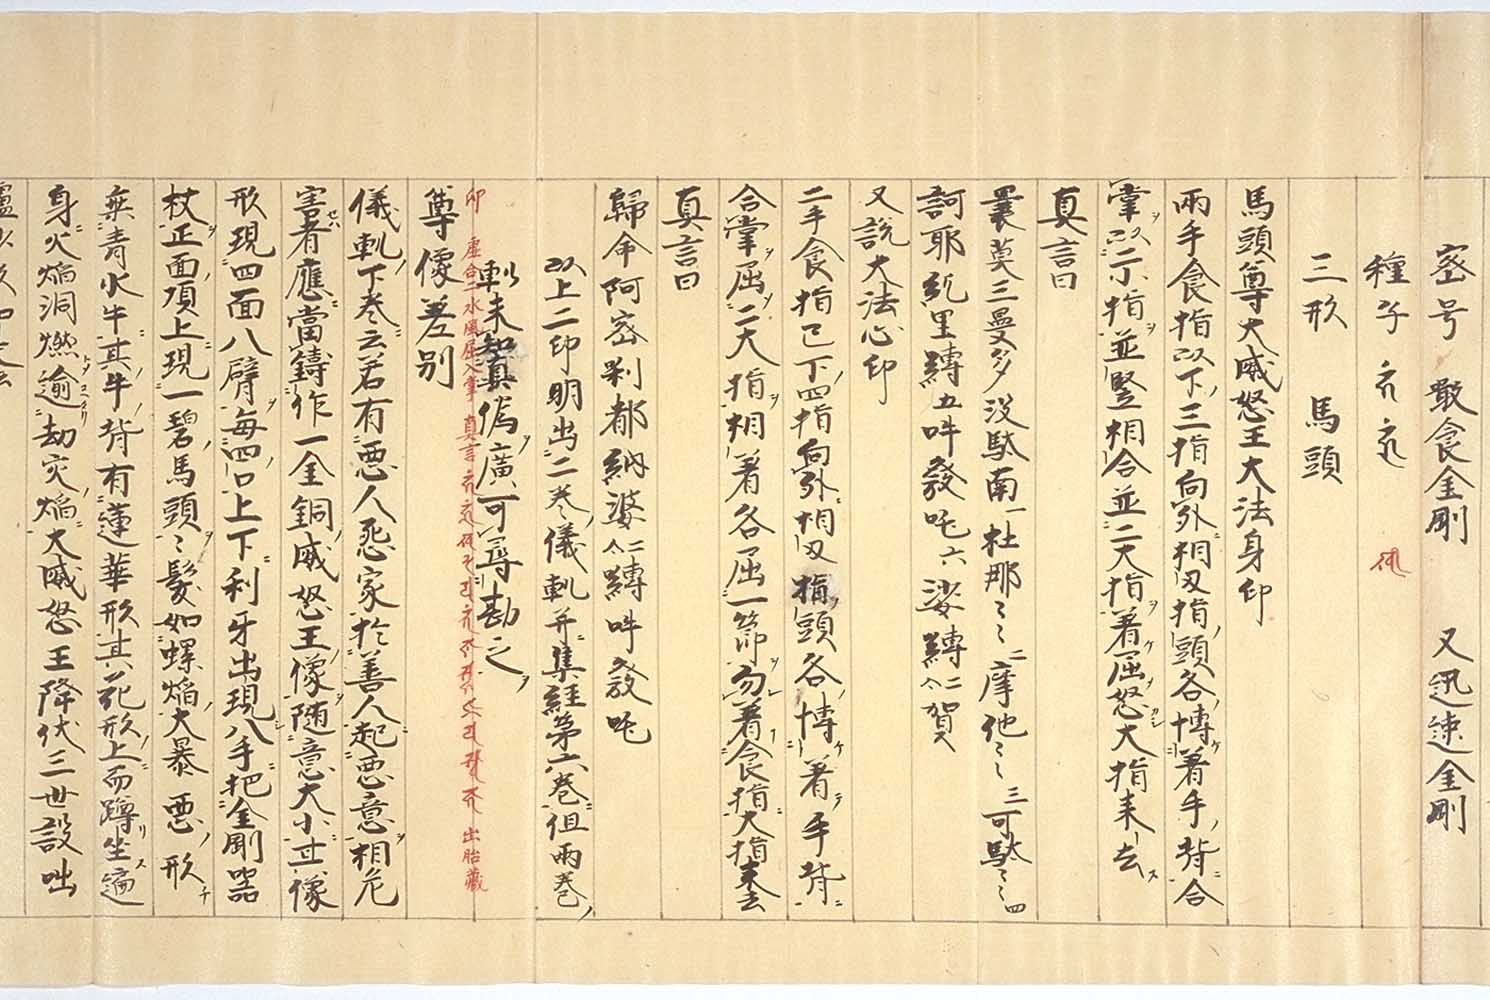 密号　噉食金剛　又迅速金剛
種子
三形　馬頭
馬頭尊大威怒王大法身印
兩手食指以下三指向外相叉指頭各博著手背合
掌以二小指並竪相合並二大指著屈怒大指来去
真言曰
曩莫三曼多没駄南一杜那〻二摩他〻三可駄〻四
訶耶紇里縛五吽發吒六娑縛二合賀
又説大法心印
二手食指已下四指向外相叉指頭各博著手背
合掌屈二大指相著各屈一節勿著食指大指来去
真言曰
歸命阿密刹都納婆二合縛吽發吒
以上二印明出二巻儀軌并集経第六巻但兩巻
軌未知真偽廣可尋勘之
印　虚合二水風屈入掌　真言　出胎藏
尊像差別
儀軌下巻云若有悪人怨家於善人起悪意相危
害者應當鑄作一金銅威怒王像随意大小其像
形現四面八臂每四口上下利牙出現八手把金剛器
杖正面頂上現一碧馬頭〻髪如螺焔大暴悪形
乗青水牛其牛背有蓮華形其花形上而蹲坐遍
身火焔洞燃逾劫災焔大威怒王降伏三世設咄